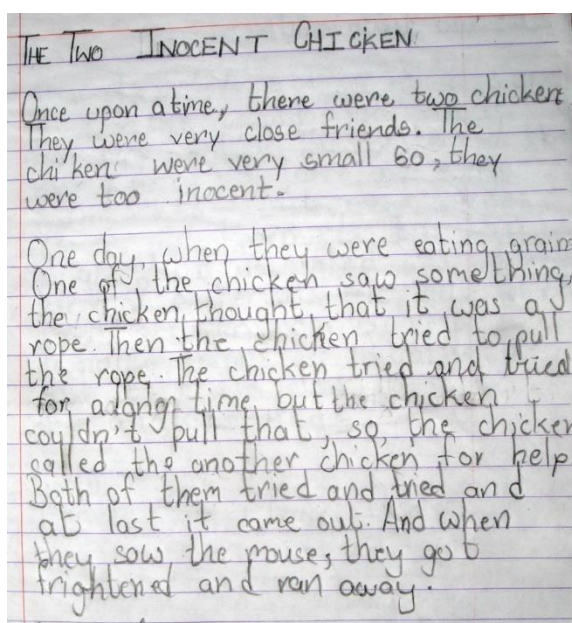 THE TWO INOCENT CHICKEN
Once upon a time, there were two chicken
They were very close friends. The
chi ken were very small so, they
were too inocent.
One day, when they were eating grain
One of the chicken saw something,
the chicken, thought, that it was a
rope. Then the chicken tried to pull
the rope. The chicken tried and tried
for time, but the chicken
couldn't pull that, so, the chicken
called the another chicken for help
Both of them tried and tried and
at last it came out. And when
they saw the mouse, they got
frightened and ran away.